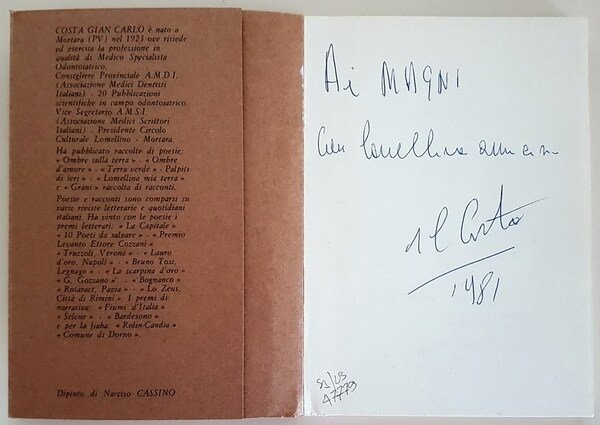 COSTA GIAN CARLO è nato a
Mortara (PV) nel 1923 ove risiede
ed esercita la professione in
qualità di Medico Specialista
Odontoiatrico.
Consigliere Provinciale A.M.D.I.
(Associazione Medici Dentisti
Italiani) - 20 Pubblicazioni
scientifiche in campo odontoiatrico.
Vice Segretario A.M.S.I.
(Associazione Medici Scrittori
Italiani) - Presidente Circolo
Culturale Lomellino - Mortara.
Ha pubblicato raccolte di poesie:
« Ombre sulla terra » - « Ombre
d'amore » - « Terra verde » - Palpiti
di ieri » - « Lomellina mia terra »
e « Grani » raccolta di racconti.
Poesie e racconti sono comparsi su
varie riviste letterarie e quotidiani
italiani. Ha vinto con le poesie i
premi letterari: « La Capitale »
« 10 Poeti da salvare » - « Premio
Levanto Ettore Cozzani »
« Truzzoli, Verona » - « Lauro
d'oro, Napoli » - « Bruno Tosi,
Legnago » - « La scarpina d'oro »
« G. Gozzano » - « Bognanco »
« Rotaract, Pavia » - « Lo Zeus,
Città di Rimini ». I premi di
narrativa: « Fiumi d'Italia »
« Selene » - « Bardesono »
e per la fiaba: « Rolin-Candia »
« Comune di Dorno ».
Dipinto di Narciso CASSINO
Ai MAGNI
con lomellina
Costa
1981
47779